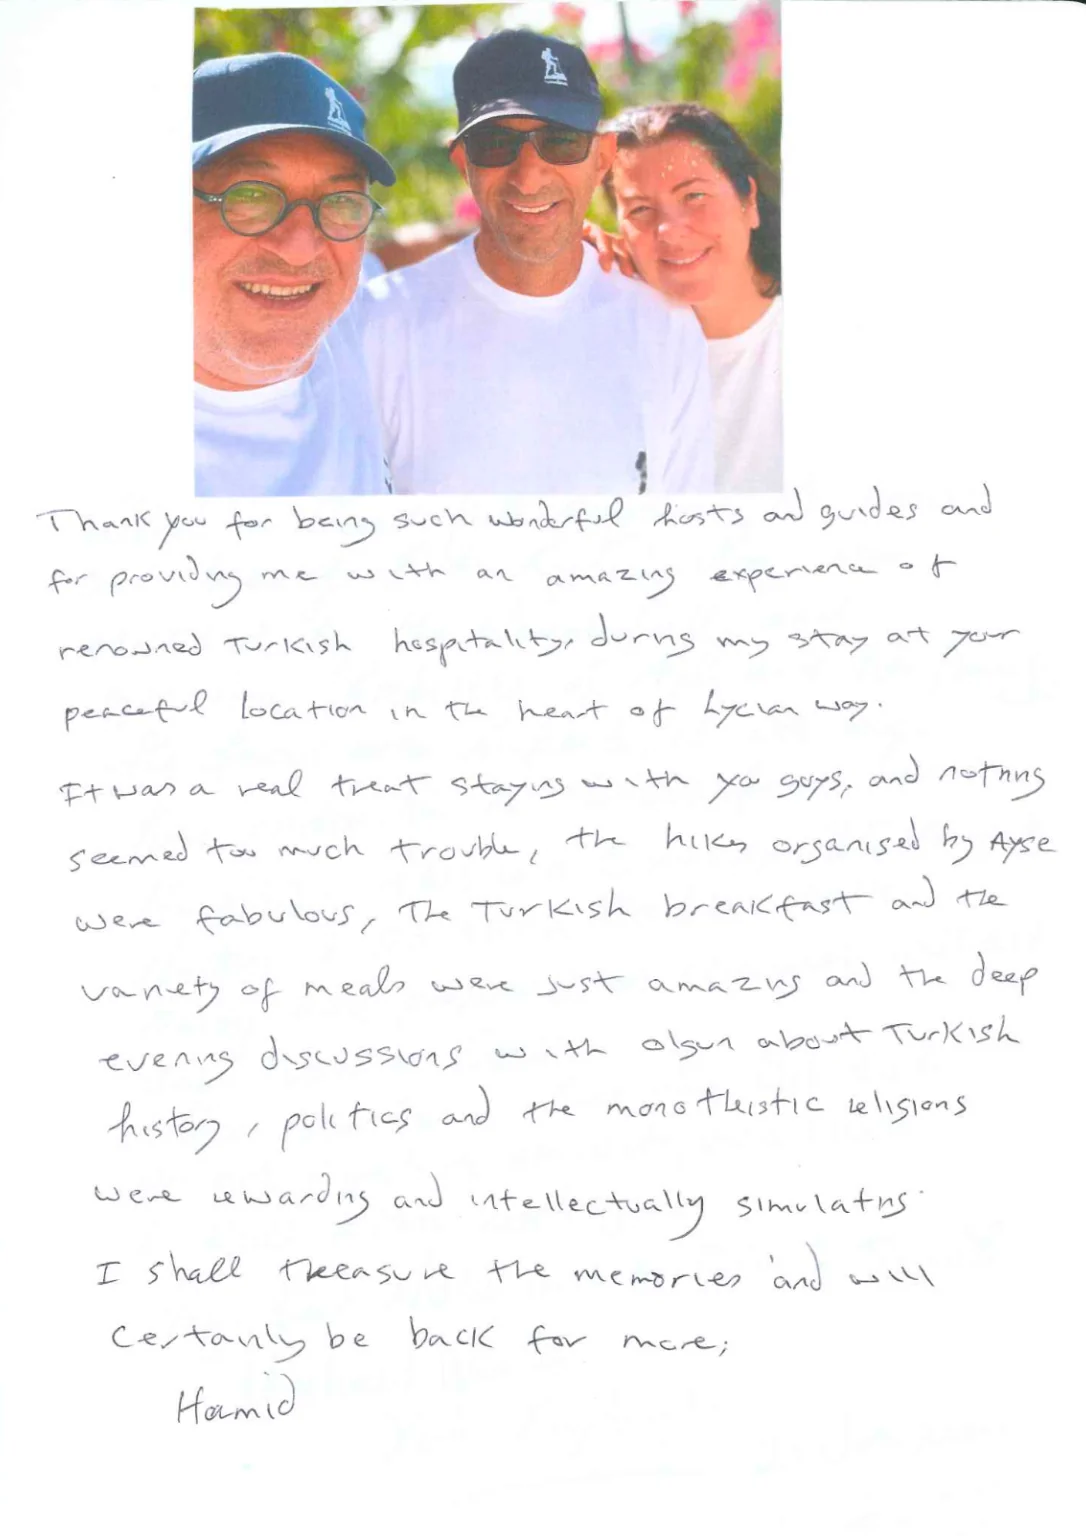 Thank you for being such wonderful hosts and guides and
for providing me with an amazing experience of
renowned Turkish hospitality, during my stay at your
peaceful location in the heart of Lycian way.
It was a real treat staying with you guys, and nothing
seemed too much trouble, the hikes organised by Ayse
were fabulous, The Turkish breakfast and the
variety of meals were just amazing and the deep
evening discussions with olgun about Turkish
history, politics and the monotheistic religions
were rewarding and intellectually simulating.
I shall treasure the memories and will
certainly be back for more;
Hamid